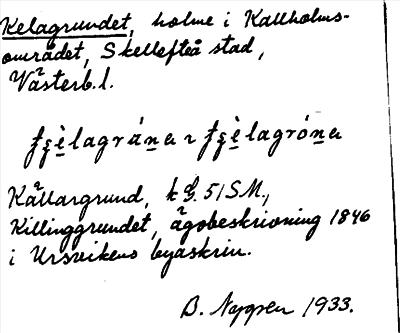 Kelagrundet, holme i Kallholms-
området, Skellefteå stad,
Västerb. l.
Källargrund, 51 SM.,
Killinggrundet, ägobeskrivning 1846
i Ursvikens byaskrin.
B. Nygren 1933.